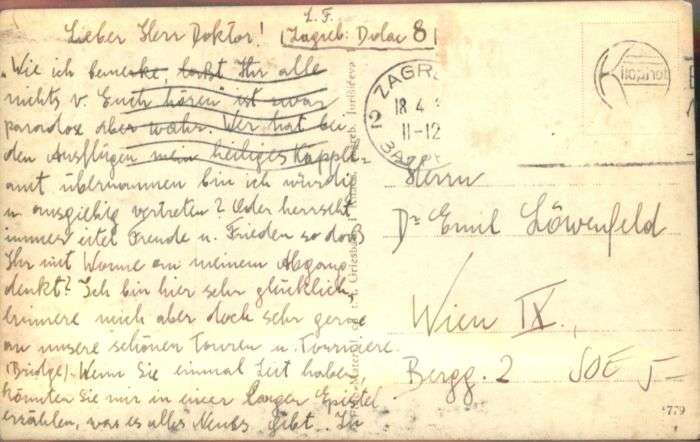 L.F.
Lieber Herr Doktor! (Zagreb: Dolac 8)
"Wie ich bemerke, laßt Ihr alle
nichts v. Euch hören" ist zwar
paradox aber wahr. Wer hat bei
den Ausflügen mein heiliges
amt übernommen bin ich würdig
u. ausgiebig vertreten? Oder herrscht
immer eitel Freude u. Frieden so daß
Ihr mit Wonne an meinen Abgang
denkt? Ich bin hier sehr glücklich,
erinnere mich aber doch sehr gerne
an unsere schönen Touren u. Tourniere
(Bridge). Wenn Sie einmal Zeit haben,
könnten Sie mir in einer langen Epistel
erzählen, was es alles Neues gibt. In
ZAGR
18 4
11-12
2
Herrn
Dr Emil Löwenfeld
Wien IX.,
Bergg. 2
779